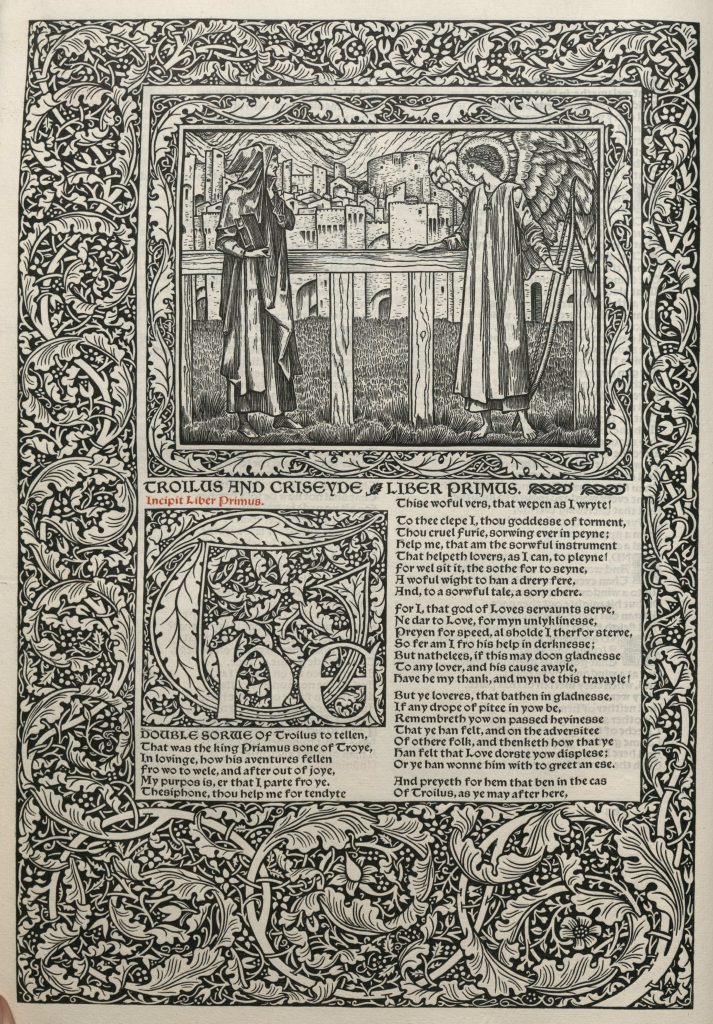 TROILUS AND CRISEYDE LIBER PRIMUS.
Incipit Liber Primus.
The
DOUBLE SORWE OF Troilus to tellen,
That was the king Priamus sone of Troye,
In lovinge, how his aventures fellen
Fro wo to wele, and after out of joye,
My purpos is, er that I parte fro ye.
Thesiphone, thou help me for tendyte
Thise woful vers, that wepen as I wryte!
To thee clepe I, thou goddesse of torment,
Thou cruel Furie, sorwing ever in peyne;
Help me, that am the sorwful instrument
That helpeth lovers, as I can, to pleyne!
For wel sit it, the sothe for to seyne,
A woful wight to han a drery fere,
And, to a sorwful tale, a sory chere.
For I, that god of Loves servaunts serve,
Ne dar to Love, for myn unlyklinesse,
Preyen for speed, al sholde I therfor sterve,
So fer am I fro his help in derknesse;
But nathelees, if this may doon gladnesse
To any lover, and his cause avayle,
Have he my thank, and myn be this travayle!
But ye loveres, that bathen in gladnesse,
If any drope of pitee in yow be,
Remembreth yow on passed hevinesse
That ye han felt, and on the adversitee
Of othere folk, and thenketh how that ye
Han felt that Love dorste yow displese;
Or ye han wonne him with to greet an ese.
And preyeth for hem that ben in the cas
Of Troilus, as ye may after here,